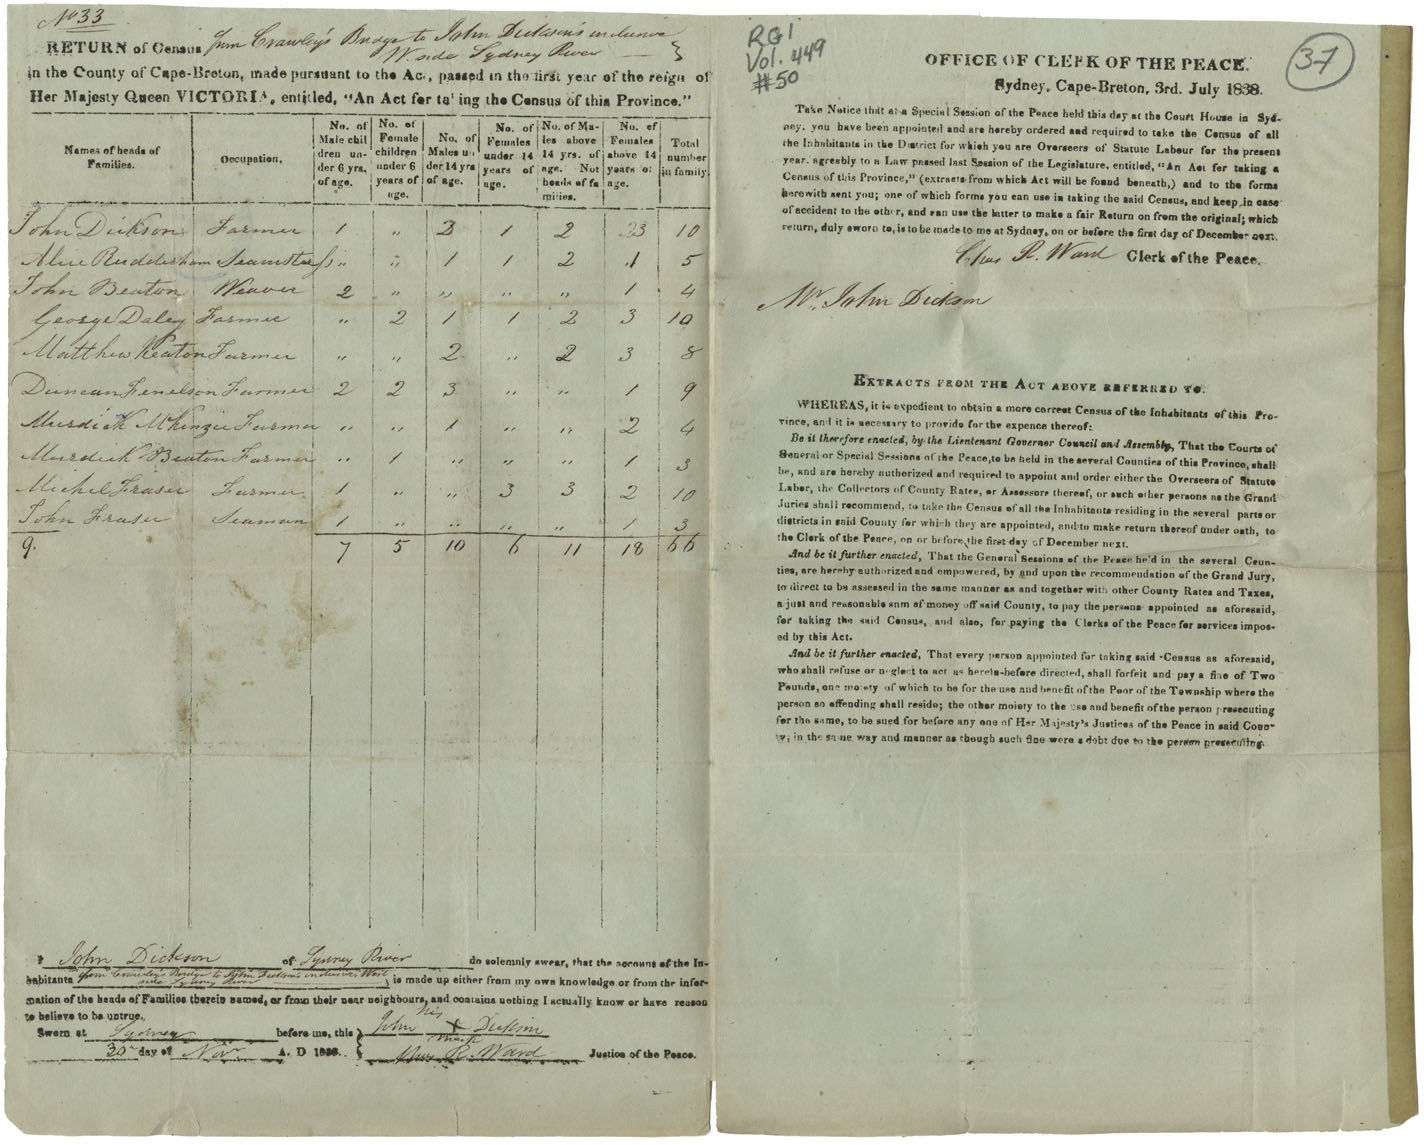 No 33
RETURN of Census from Crawley's Bridge to John Dickson's inclusive
W. side Sydney River
in the County of Cape-Breton, made pursuant to the Act, passed in the first year of the reign of
Her Majesty Queen VICTORIA, entitled, "An Act for ta'ing the Census of this Province."
Names of heads of Families. | Occupation. | No. of Male chil dren un- der 6 yrs. of age. | No. of Female children under 6 years of age. | No. of Males un der 14 yrs of age. | No. of Females under 14 years of age. | No. of Ma- les above 14 yrs. of age. Not heads of fa milies. | No. of Females above 14 years of age. | Total number in family.
John Dickson Farmer 1 " 3 1 2 3 10
Alice Rudderham Seamstress " " 1 1 2 1 5
John Beaton Weaver 2 " " " " 1 4
George Daley Farmer " 2 1 1 2 3 10
Matthew Keaton Farmer " " 2 " 2 3 8
Duncan Fenelson Farmer 2 2 3 " " 1 9
Murdick McKinzie Farmer " " 1 " " 2 4
Murdick Beaton Farmer " 1 " " " 1 3
Michel Fraser Farmer 1 " " 3 3 2 10
John Fraser Seaman 1 " " " " 1 3
9. 7 5 10 6 11 18 66
I John Dickson of Sydney River do solemnly swear, that the account of the In-
habitants from Crawley's Bridge to John Dickson's inclusive West side Sydney River is made up either from my own knowledge or from the infor-
mation of the heads of Families therein named, or from their near neighbours, and contains nothing I actually know or have reason
to believe to be untrue.
Sworn at Sydney before me, this
30th day of Novr A. D 1838.
his
John X Dickson
mark
Chas R. Ward Justice of the Peace.
RG1
Vol. 449
#50
37
OFFICE OF CLERK OF THE PEACE.
Sydney, Cape-Breton, 3rd. July 1838.
Take Notice that at a Special Session of the Peace held this day at the Court House in Syd-
ney, you have been appointed and are hereby ordered and required to take the Census of all
the Inhabitants in the District for which you are Overseers of Statute Labour for the present
year, agreably to a Law passed last Session of the Legislature, entitled, "An Act for taking a
Census of this Province," (extracts from which Act will be found beneath,) and to the forms
herewith sent you; one of which forms you can use in taking the said Census, and keep, in case
of accident to the other, and can use the latter to make a fair Return on from the original; which
return, duly sworn to, is to be made to me at Sydney, on or before the first day of December next.
Chas R. Ward Clerk of the Peace.
Mr. John Dickson
EXTRACTS FROM THE ACT ABOVE REFERRED TO.
WHEREAS, it is expedient to obtain a more correct Census of the Inhabitants of this Pro-
vince, and it is necessary to provide for the expence thereof:
Be it therefore enacted, by the Lieutenant Governor Council and Assembly, That the Courts of
General or Special Sessions of the Peace, to be held in the several Counties of this Province, shall
be, and are hereby authorized and required to appoint and order either the Overseers of Statute
Labor, the Collectors of County Rates, or Assessors thereof, or such other persons as the Grand
Juries shall recommend, to take the Census of all the Inhabitants residing in the several parts or
districts in said County for which they are appointed, and to make return thereof under oath, to
the Clerk of the Peace, on or before the first day of December next.
And be it further enacted, That the General Sessions of the Peace he'd in the several Coun-
ties, are hereby authorized and empowered, by and upon the recommendation of the Grand Jury,
to direct to be assessed in the same manner as and together with other County Rates and Taxes,
a just and reasonable snm of money off said County, to pay the persons appointed as aforesaid,
for taking the said Census, and also, for paying the Clerks of the Peace for services impos-
ed by this Act.
And be it further enacted, That every person appointed for taking said Census as aforesaid,
who shall refuse or neglect to act as herein-before directed, shall forfeit and pay a fine of Two
Pounds, one moiety of which to be for the use and benefit of the Poor of the Township where the
person so offending shall reside; the other moiety to the use and benefit of the person prosecuting
for the same, to be sued for before any one of Her Majesty's Justices of the Peace in said Coun-
ty; in the same way and manner as though such fine were a debt due to the person prosecuting.